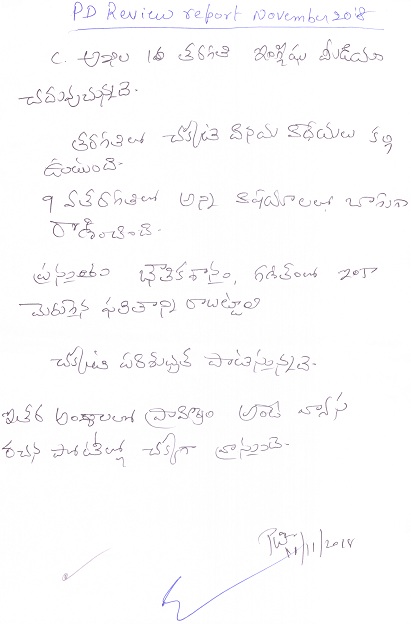 PD Review report November 2018
C. అఖిల 10 తరగతి ఇంగ్లీషు మీడియం
చదువుచున్నది.
తరగతిలో చక్కటి వినయ విధేయలు కల్గి
ఉంటుంది.
9 వ తరగతిలో అన్ని విషయాలలో బాగుగా
రాణించింది.
ప్రస్తుతం భౌతికశాస్త్రం, గణితంలో ఇంకా
మెరుగైన ఫలితాన్ని రాబట్టాలి
చక్కటి పరిశుభ్రత పాటిస్తున్నది.
ఇతర అంశాలలో ప్రావీణ్యం అంటే వ్యాస
రచన పోటీల్లో చక్కగా వ్రాస్తుంది.
11/11/2018